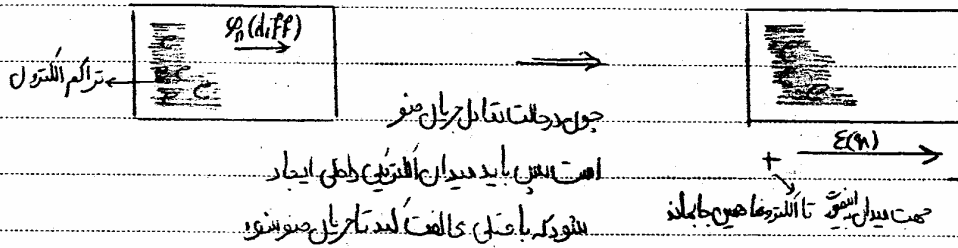 φn(diff)
تراکم الکترون
چون در حالت تعادل جریان صفر
است پس باید میدان الکتریکی داخلی ایجاد
شود که با قبلی مخالفت کند تا جریان صفر شود
ε(x)
+
جهت میدان اینطوری تا الکترونها همین جا بمانند